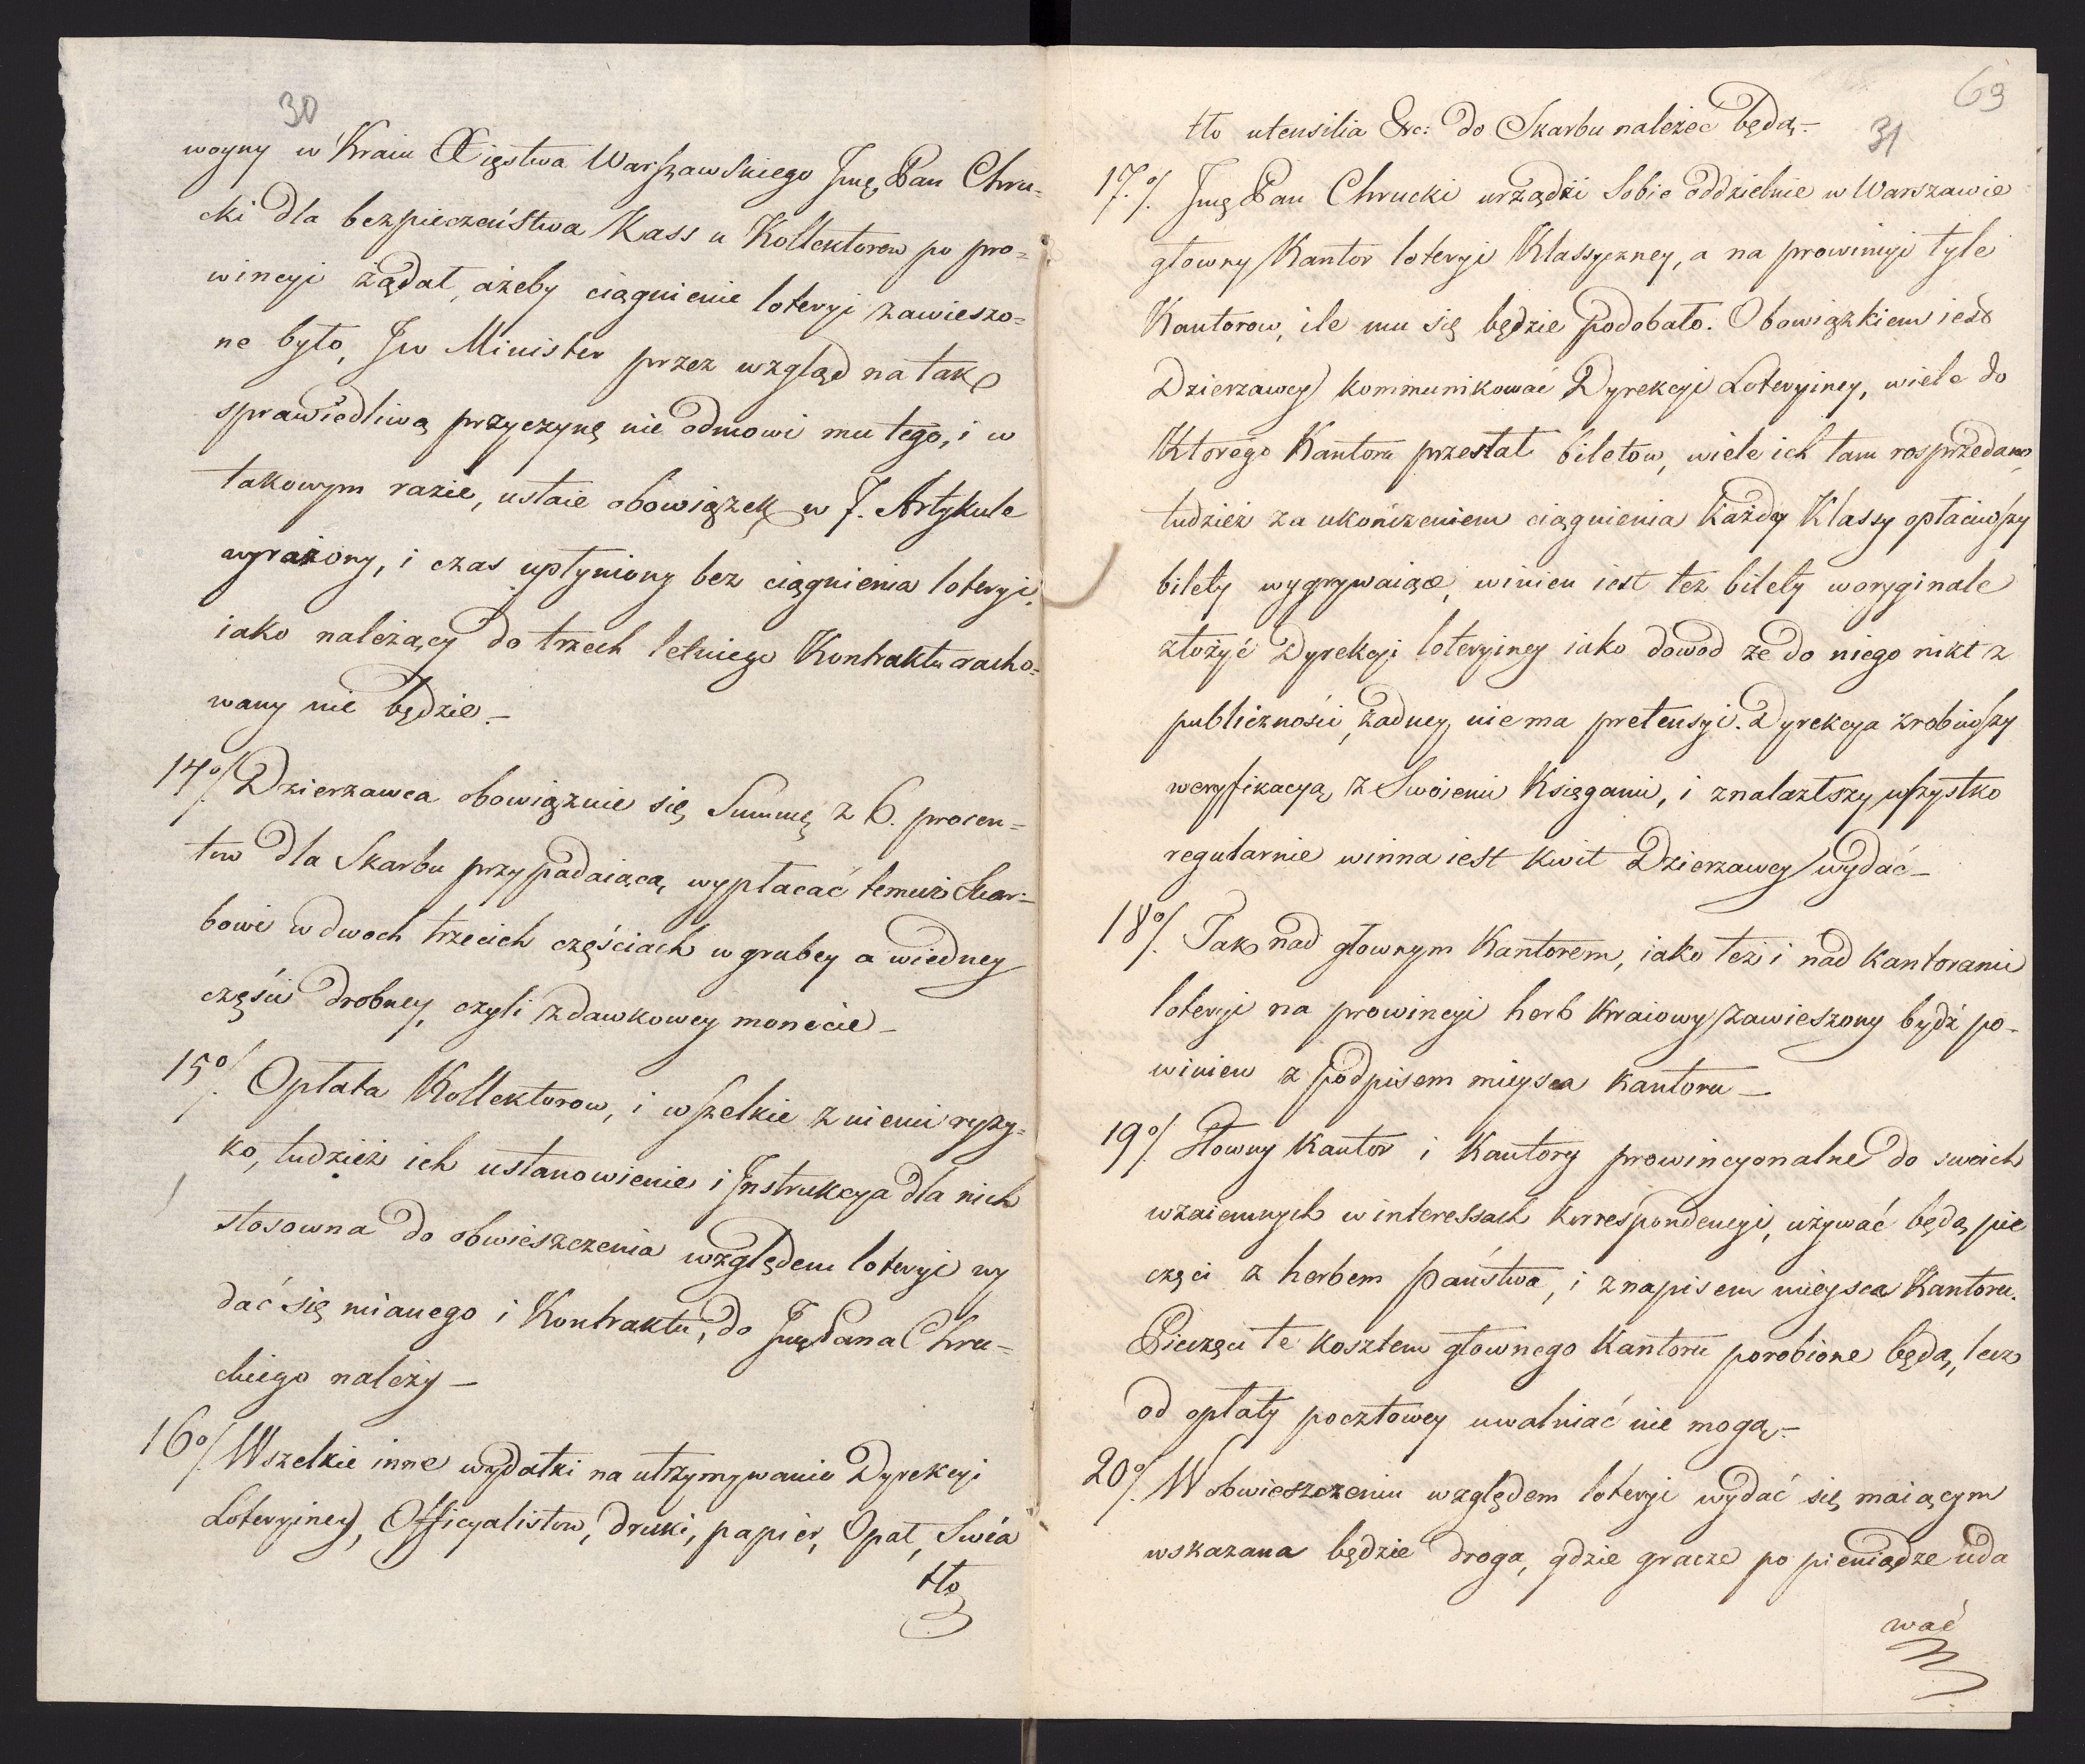 30
woyny w Kraiu Xięstwa Warszawskiego Jmę Pan Chru-
cki dla bezpieczeństwa Kass u Kollektorow po pro-
wincyi żądał, ażeby ciągnienie loteryi zawieszo-
ne było, Jw Minister przez wzgląd na tak
sprawiedliwą przyczynę nie odmowi mu tego, i w
takowym razie, ustaie obowiązek w 7. Artykule
wyrażony, i czas upłyniony bez ciągnienia loteryi,
iako należący do trzech letniego Kontraktu racho-
wany nie będzie.-
14º/. Dzierzawca obowiązuie się Summę z 6. procen-
tow dla Skarbu przypadaiącą wypłacać temuż Skar-
bowi w dwoch trzecich częściach w grubey a w iedney
części drobney, czyli zdawkowey monecie-
15º/. Opłata Kollektorow, i wszelkie z niemi ryzy-
ko, tudzież ich ustanowienie i Jnstrukcya dla nich
stosowna do obwieszczenia względem loteryi wy
dać się mianego i Kontraktu, do Jmę Pana Chru-
ckiego należy-
16º/. Wszelkie inne wydatki na utrzymywanie Dyrekcyi
Loteryiney, Officyalistow, druki, papier, Opał, Swia
tło
63
31
tło utensilia &c: do Skarbu należec będą.-
17.º/. Jmę Pan Chrucki urządzi sobie oddzielnie w Warszawie
głowny Kantor loteryi Klassyczney, a na prowincyi tyle
Kantorow, ile mu się będzie podobało. Obowiązkiem iest
Dzierzawcy kommunikować Dyrekcyi Loteryiney, wiele do
Ktorego Kantoru przesłał biletow, wiele ich tam rosprzedano,
tudzież za ukończeniem ciągnienia każdey Klassy opłaciwszy
bilety wygrywaiące, winien iest też bilety w oryginale
złożyć Dyrekcyi loteryiney iako dowod ze do niego nikt z
publiczności żadney nie ma pretensyi. Dyrekcya zrobiwszy
weryfikacyą z Swoiemi Księgami, i znalazłszy wszystko
regularnie winna iest kwit Dzierzawcy wydać-
18º/. Tak nad głownym Kantorem, iako też i nad kantorami
loteryi na prowincyi herb kraiowy zawieszony bydź po-
winien z podpisem mieysca kantoru-
19º/. Głowny Kantor i Kantory prowincyonalne do swoich
wzaiemnych w interessach korrespondencyi, używać będą pie
częci z herbem państwa, i z napisem mieysca Kantoru.
Pieczęci te kosztem głownego Kantoru porobione będą, lecz
od opłaty pocztowey uwalniać nie mogą.-
20º/. W obwieszczeniu względem loteryi wydać się maiącym
wskazana będzie droga, gdzie gracze po pieniądze uda
wać